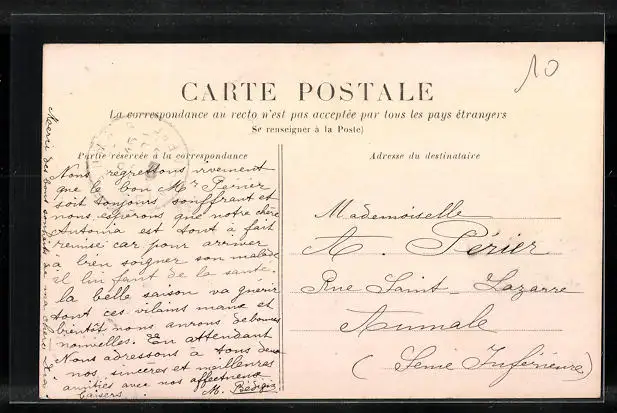 10
CARTE POSTALE
La correspondance au recto n'est pas acceptée par tous les pays étrangers
Se renseigner à la Poste)
Partie réservée à la correspondance
Adresse du destinataire
Nous regrettons vivement
que le bon Mr Périer
soit toujours souffrant et
nous espérons que notre chère
Antonia est tout à fait
remise car pour arriver
à bien soigner son malade
il lui faut de la santé.
la belle saison va guérir
tout ces vilains maux et
bientôt nous aurons de bonnes
nouvelles. En attendant
Nous adressons à tous deux
nos sincères et meilleures
amitiés avec nos affectueux
baisers. M.
Merci des bons souhaits de ma chère
Mademoiselle
A. Périer
Rue Saint-Lazarre
Aumale
(Seine Inférieure)